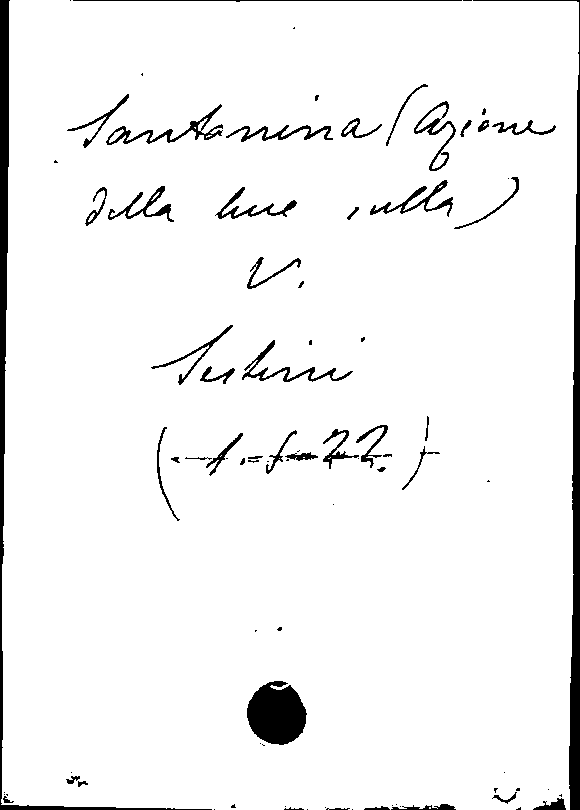 Santonina (Azione
della luce sulla)
V.
Sestini
(1.5-22.)